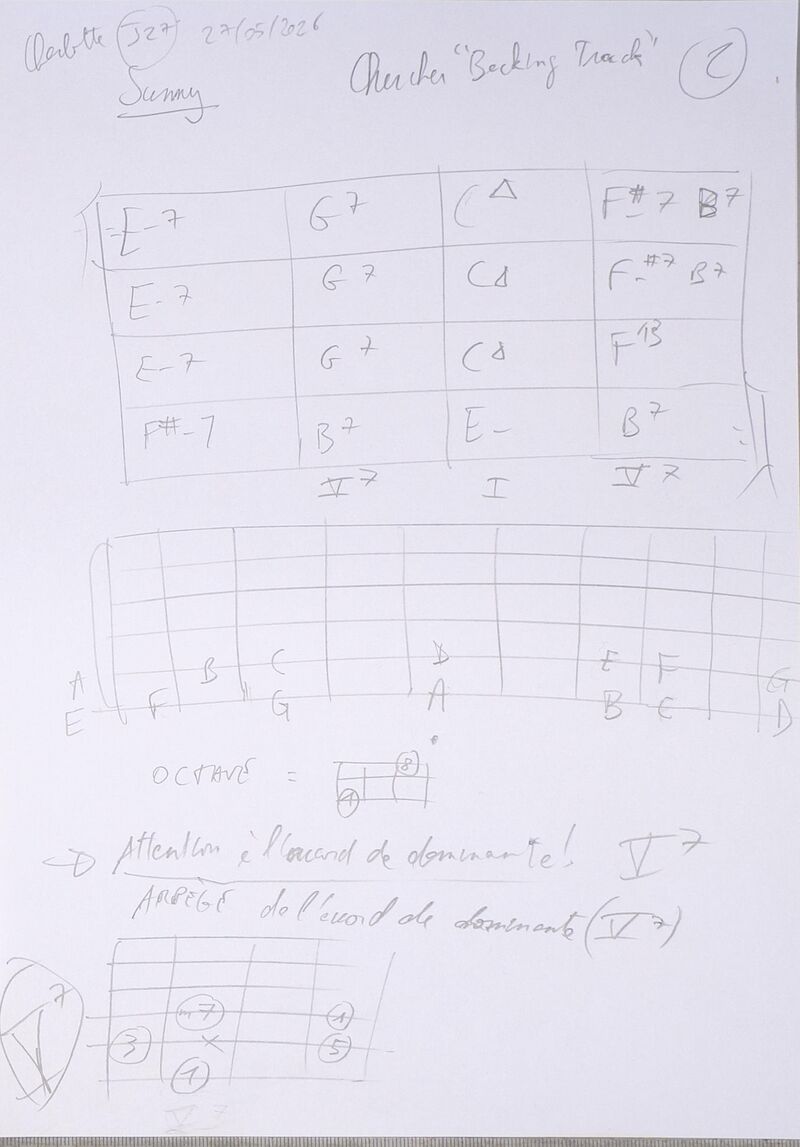 Charlotte J27 27/05/2026
Sunny
Chercher "Backing Track" 2
E-7 G7 CΔ F#-7 B7
E-7 G7 CΔ F-#7 B7
E-7 G7 CΔ F13
F#-7 B7 E- B7
V7 I V7
A B C D E F G
E F G A B C D
OCTAVE = 1 8
→ Attention à l'accord de dominante! V7
ARPÈGE de l'accord de dominante (V7)
V7
m7 1
3 x 5
1
V7